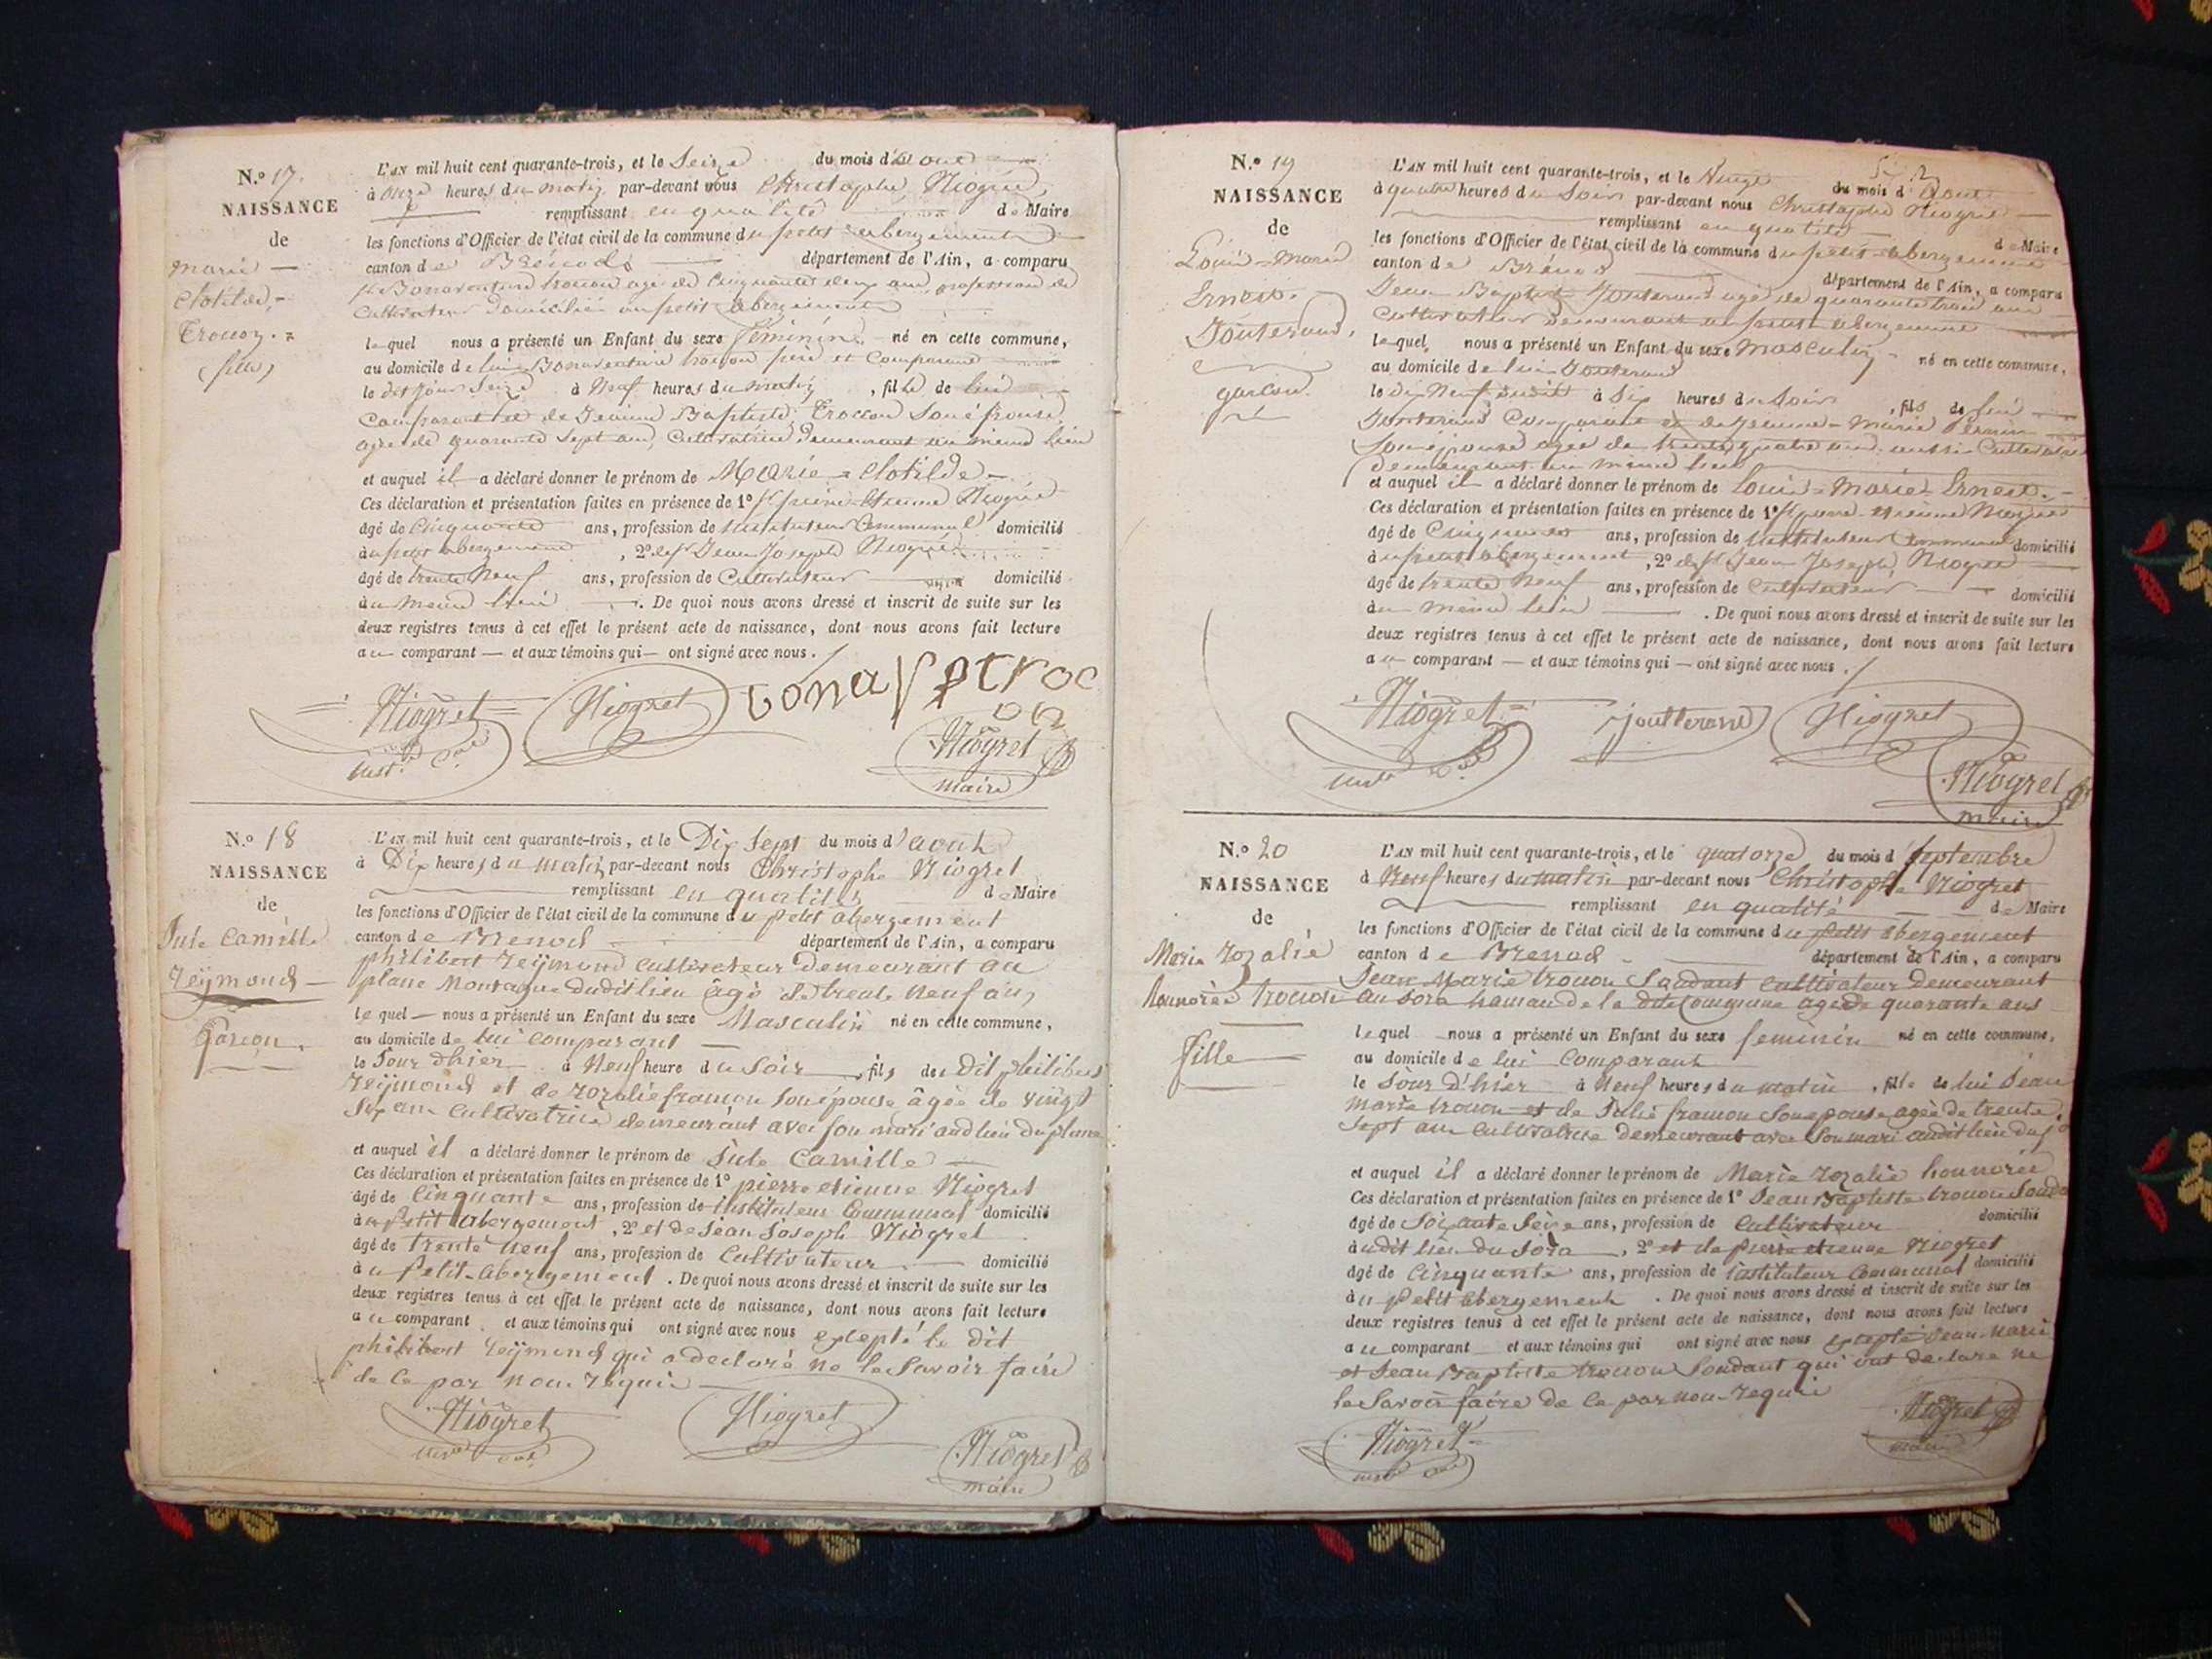 N.º 17.
NAISSANCE
de
Marie
Clotilde,
Trocon
L'AN mil huit cent quarante-trois, et le Seize du mois d'aout
à onze heures du matin par-devant nous Christophe Niogret
remplissant en qualité de Maire
les fonctions d'Officier de l'état civil de la commune du petit abergement
canton de Brénod département de l'Ain, a comparu
Bonaventure trocon agé de cinquante deux ans profession de
Cultivateur domicilié au petit abergement
lequel nous a présenté un Enfant du sexe féminin né en cette commune,
au domicile de lui Bonaventure trocon père et Comparant
le dit jour Seize à Neuf heures du matin, fille de lui
Comparant et de Jeanne Baptiste Troccon Son épouse
agée de quarante Sept ans, Cultivatrice demeurant au même lieu
et auquel il a déclaré donner le prénom de Marie = Clotilde =
Ces déclaration et présentation faites en présence de 1º Sr pierre Etienne Niogret
âgé de cinquante ans, profession de instituteur Communal domicilié
au petit abergement, 2º de Sr Jean Joseph Niogret
âgé de trente Neuf ans, profession de Cultivateur domicilié
au même lieu. De quoi nous avons dressé et inscrit de suite sur les
deux registres tenus à cet effet le présent acte de naissance, dont nous avons fait lecture
au comparant — et aux témoins qui — ont signé avec nous.
Niogret Niogret
Niogret
maire
N.º 18
NAISSANCE
de
Jule Camille
Reymond
Garçon.
L'AN mil huit cent quarante-trois, et le Dix Sept du mois d'aout
à Dix heures du matin par-devant nous Christophe Niogret
remplissant en qualité de Maire
les fonctions d'Officier de l'état civil de la commune du petit abergement
canton de Brenod département de l'Ain, a comparu
philibert Reymond cultivateur demeurant au
plane Montagne dudit lieu âgé de trente neuf ans
lequel — nous a présenté un Enfant du sexe Masculin né en cette commune,
au domicile de lui comparant
le Jour d'hier à Neuf heure du Soir, fils de dit philibert
Reymond et de rozalie framion son épouse âgée de vingt
Six ans Cultivatrice demeurant avec son mari audit lieu du plane
et auquel il a déclaré donner le prénom de Jule Camille
Ces déclaration et présentation faites en présence de 1º pierre etienne Niogret
âgé de Cinquante ans, profession de instituteur Communal domicilié
au petit abergement, 2º et de Jean Joseph Niogret
âgé de trente neuf ans, profession de Cultivateur domicilié
au Petit-abergement. De quoi nous avons dressé et inscrit de suite sur les
deux registres tenus à cet effet le présent acte de naissance, dont nous avons fait lecture
au comparant et aux témoins qui ont signé avec nous excepté le dit
philibert Reymond qui a declaré ne le Savoir faire
de ce par nous requi
Niogret Niogret
Niogret
maire
N.º 19
NAISSANCE
de
Louis = Marie
Ernest.
Jouterand,
garçon.
L'AN mil huit cent quarante-trois, et le Vingt du mois d'Aout
à quatre heures du Soir par-devant nous Christophe Niogret
remplissant en qualité de Maire
les fonctions d'Officier de l'état civil de la commune du petit abergement
canton de Brénod département de l'Ain, a comparu
Jean Baptiste Jouterand agé de quarante trois ans
Cultivateur demeurant au petit abergement
lequel, nous a présenté un Enfant du sexe Masculin né en cette commune,
au domicile de lui Jouterand
le dix Neuf dudit à Six heures du Soir, fils de lui
Jouterand Comparant et de Jeanne = Marie
Son épouse agée de trente quatre ans aussi Cultivatrice
demeurant au même lieu
et auquel il a déclaré donner le prénom de Louis = Marie = Ernest.
Ces déclaration et présentation faites en présence de 1º Sr pierre etienne Niogret
âgé de Cinquante ans, profession de instituteur Communal domicilié
au petit abergement, 2º de Sr Jean Joseph Niogret
âgé de trente Neuf ans, profession de Cultivateur domicilié
au même lieu. De quoi nous avons dressé et inscrit de suite sur les
deux registres tenus à cet effet le présent acte de naissance, dont nous avons fait lecture
au comparant — et aux témoins qui — ont signé avec nous.
Niogret joutterand Niogret
Niogret
maire
N.º 20
NAISSANCE
de
Marie rozalie
honnorée trocon
fille
L'AN mil huit cent quarante-trois, et le quatorze du mois d'Septembre
à Neuf heures du matin par-devant nous Christophe Niogret
remplissant en qualité de Maire
les fonctions d'Officier de l'état civil de la commune du petit abergement
canton de Brenod département de l'Ain, a comparu
Jean Marie trocon Soudant cultivateur demeurant
au Jora hamau de la dite Commune agé de quarante ans
lequel nous a présenté un Enfant du sexe feminin né en cette commune,
au domicile de lui comparant
le Jour d'hier à Neuf heures du matin, fille de lui Jean
Marie trocon et de Julie framion Son epouse agée de trente
Sept ans cultivatrice demeurant avec Son mari audit lieu du
et auquel il a déclaré donner le prénom de Marie rozalie honnorée
Ces déclaration et présentation faites en présence de 1º Jean Baptiste trocon
âgé de Soixante Seize ans, profession de Cultivateur domicilié
audit lieu du Jora, 2º et de pierre etienne Niogret
âgé de cinquante ans, profession de instituteur Communal domicilié
au petit abergement. De quoi nous avons dressé et inscrit de suite sur les
deux registres tenus à cet effet le présent acte de naissance, dont nous avons fait lecture
au comparant et aux témoins qui ont signé avec nous excepté Jean Marie
et Jean Baptiste trocon Soudant qui ont declaré ne
le Savoir faire de ce par nous requi
Niogret Niogret